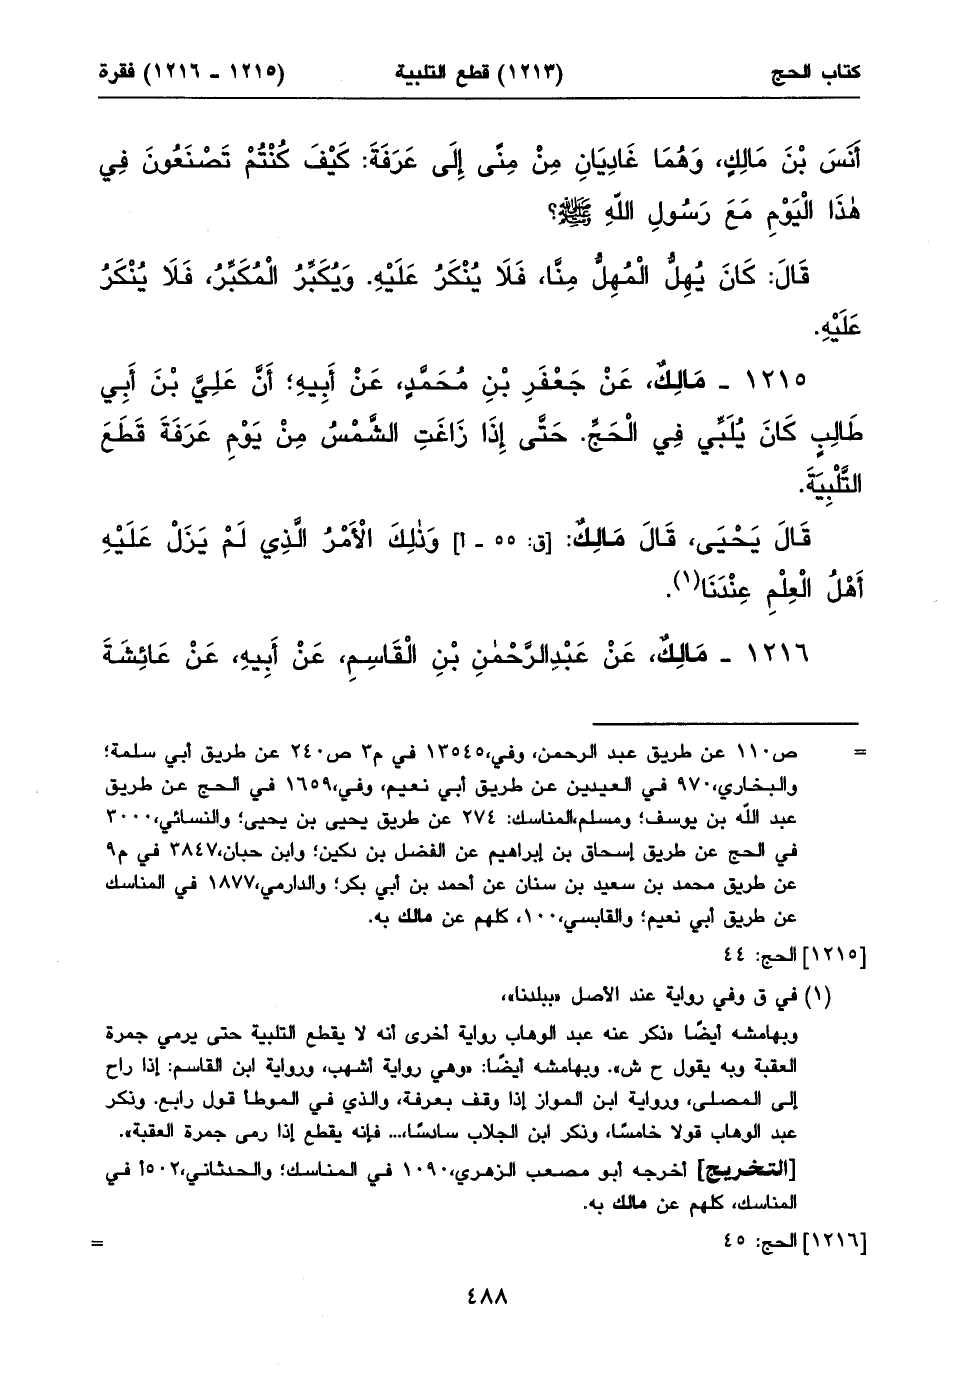 كتاب الحج (١٢١٣) قطع التلبية (١٢١٥ - ١٢١٦) فقرة
أَنَسَ بْنَ مَالِكٍ، وَهُمَا غَادِيَانِ مِنْ مِنًى إِلَى عَرَفَةَ: كَيْفَ كُنْتُمْ تَصْنَعُونَ فِي
هٰذَا الْيَوْمِ مَعَ رَسُولِ اللّهِ ﷺ؟
قَالَ: كَانَ يُهِلُّ الْمُهِلُّ مِنَّا، فَلَا يُنْكَرُ عَلَيْهِ. وَيُكَبِّرُ الْمُكَبِّرُ، فَلَا يُنْكَرُ
عَلَيْهِ.
١٢١٥ - مَالِكٌ، عَنْ جَعْفَرِ بْنِ مُحَمَّدٍ، عَنْ أَبِيهِ؛ أَنَّ عَلِيَّ بْنَ أَبِي
طَالِبٍ كَانَ يُلَبِّي فِي الْحَجِّ. حَتَّى إِذَا زَاغَتِ الشَّمْسُ مِنْ يَوْمِ عَرَفَةَ قَطَعَ
التَّلْبِيَةَ.
قَالَ يَحْيَى، قَالَ مَالِكٌ: [ق: ٥٥ - أ] وَذٰلِكَ الْأَمْرُ الَّذِي لَمْ يَزَلْ عَلَيْهِ
أَهْلُ الْعِلْمِ عِنْدَنَا(١).
١٢١٦ - مَالِكٌ، عَنْ عَبْدِالرَّحْمٰنِ بْنِ الْقَاسِمِ، عَنْ أَبِيهِ، عَنْ عَائِشَةَ
= ص١١٠ عن طريق عبد الرحمن، وفي،١٣٥٤٥ في م٣ ص٢٤٠ عن طريق أبي سلمة؛
والبخاري،٩٧٠ في العيدين عن طريق أبي نعيم، وفي،١٦٥٩ في الحج عن طريق
عبد اللّه بن يوسف؛ ومسلم،المناسك: ٢٧٤ عن طريق يحيى بن يحيى؛ والنسائي،٣٠٠٠
في الحج عن طريق إسحاق بن إبراهيم عن الفضل بن دكين؛ وابن حبان،٣٨٤٧ في م٩
عن طريق محمد بن سعيد بن سنان عن أحمد بن أبي بكر؛ والدارمي،١٨٧٧ في المناسك
عن طريق أبي نعيم؛ والقابسي،١٠٠، كلهم عن مالك به.
[١٢١٥] الحج: ٤٤
(١) في ق وفي رواية عند الأصل «ببلدنا»،
وبهامشه أيضًا «ذكر عنه عبد الوهاب رواية أخرى أنه لا يقطع التلبية حتى يرمي جمرة
العقبة وبه يقول ح ش». وبهامشه أيضًا: «وهي رواية أشهب، ورواية ابن القاسم: إذا راح
إلى المصلى، ورواية ابن المواز إذا وقف بعرفة، والذي في الموطأ قول رابع. وذكر
عبد الوهاب قولا خامسًا، وذكر ابن الجلاب سادسًا،... فإنه يقطع إذا رمى جمرة العقبة».
[التخريج] أخرجه أبو مصعب الزهري،١٠٩٠ في المناسك؛ والحدثاني،٥٠٢أ في
المناسك، كلهم عن مالك به.
[١٢١٦] الحج: ٤٥ =
٤٨٨